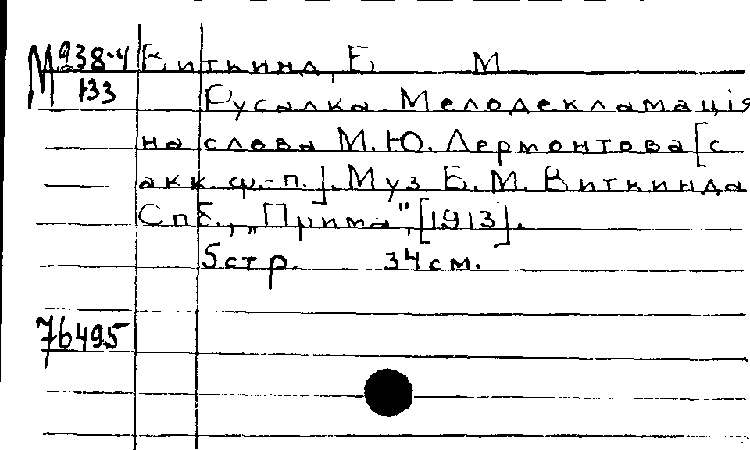 М 938-4 Виткинд, Б М
133 Русалка. Мелодекламація
на слова М.Ю. Лермонтова [с
акк. ф.-п.]. Муз Б. М. Виткинда
Спб., „Прима", [1913].
5 стр. 34 см.
76495